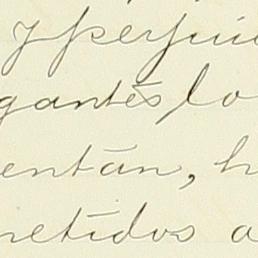 y perjui
gantes lo
entán, h
netidos a